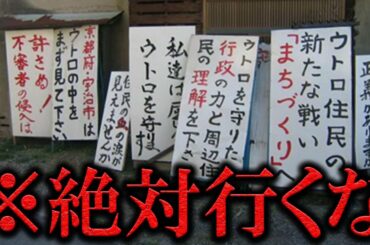 ウトロ住民の
新たな戦い
「まちづくり」へ
ウトロを守りた
行政の力と周辺住
民の理解を下
私達は
ウトロを守
住民の血の涙が
見えませんか
京都府・宇治市は
まず見て下さい
ウトロの中を
不審者の侵入は
許さぬ!
※絶対行くな